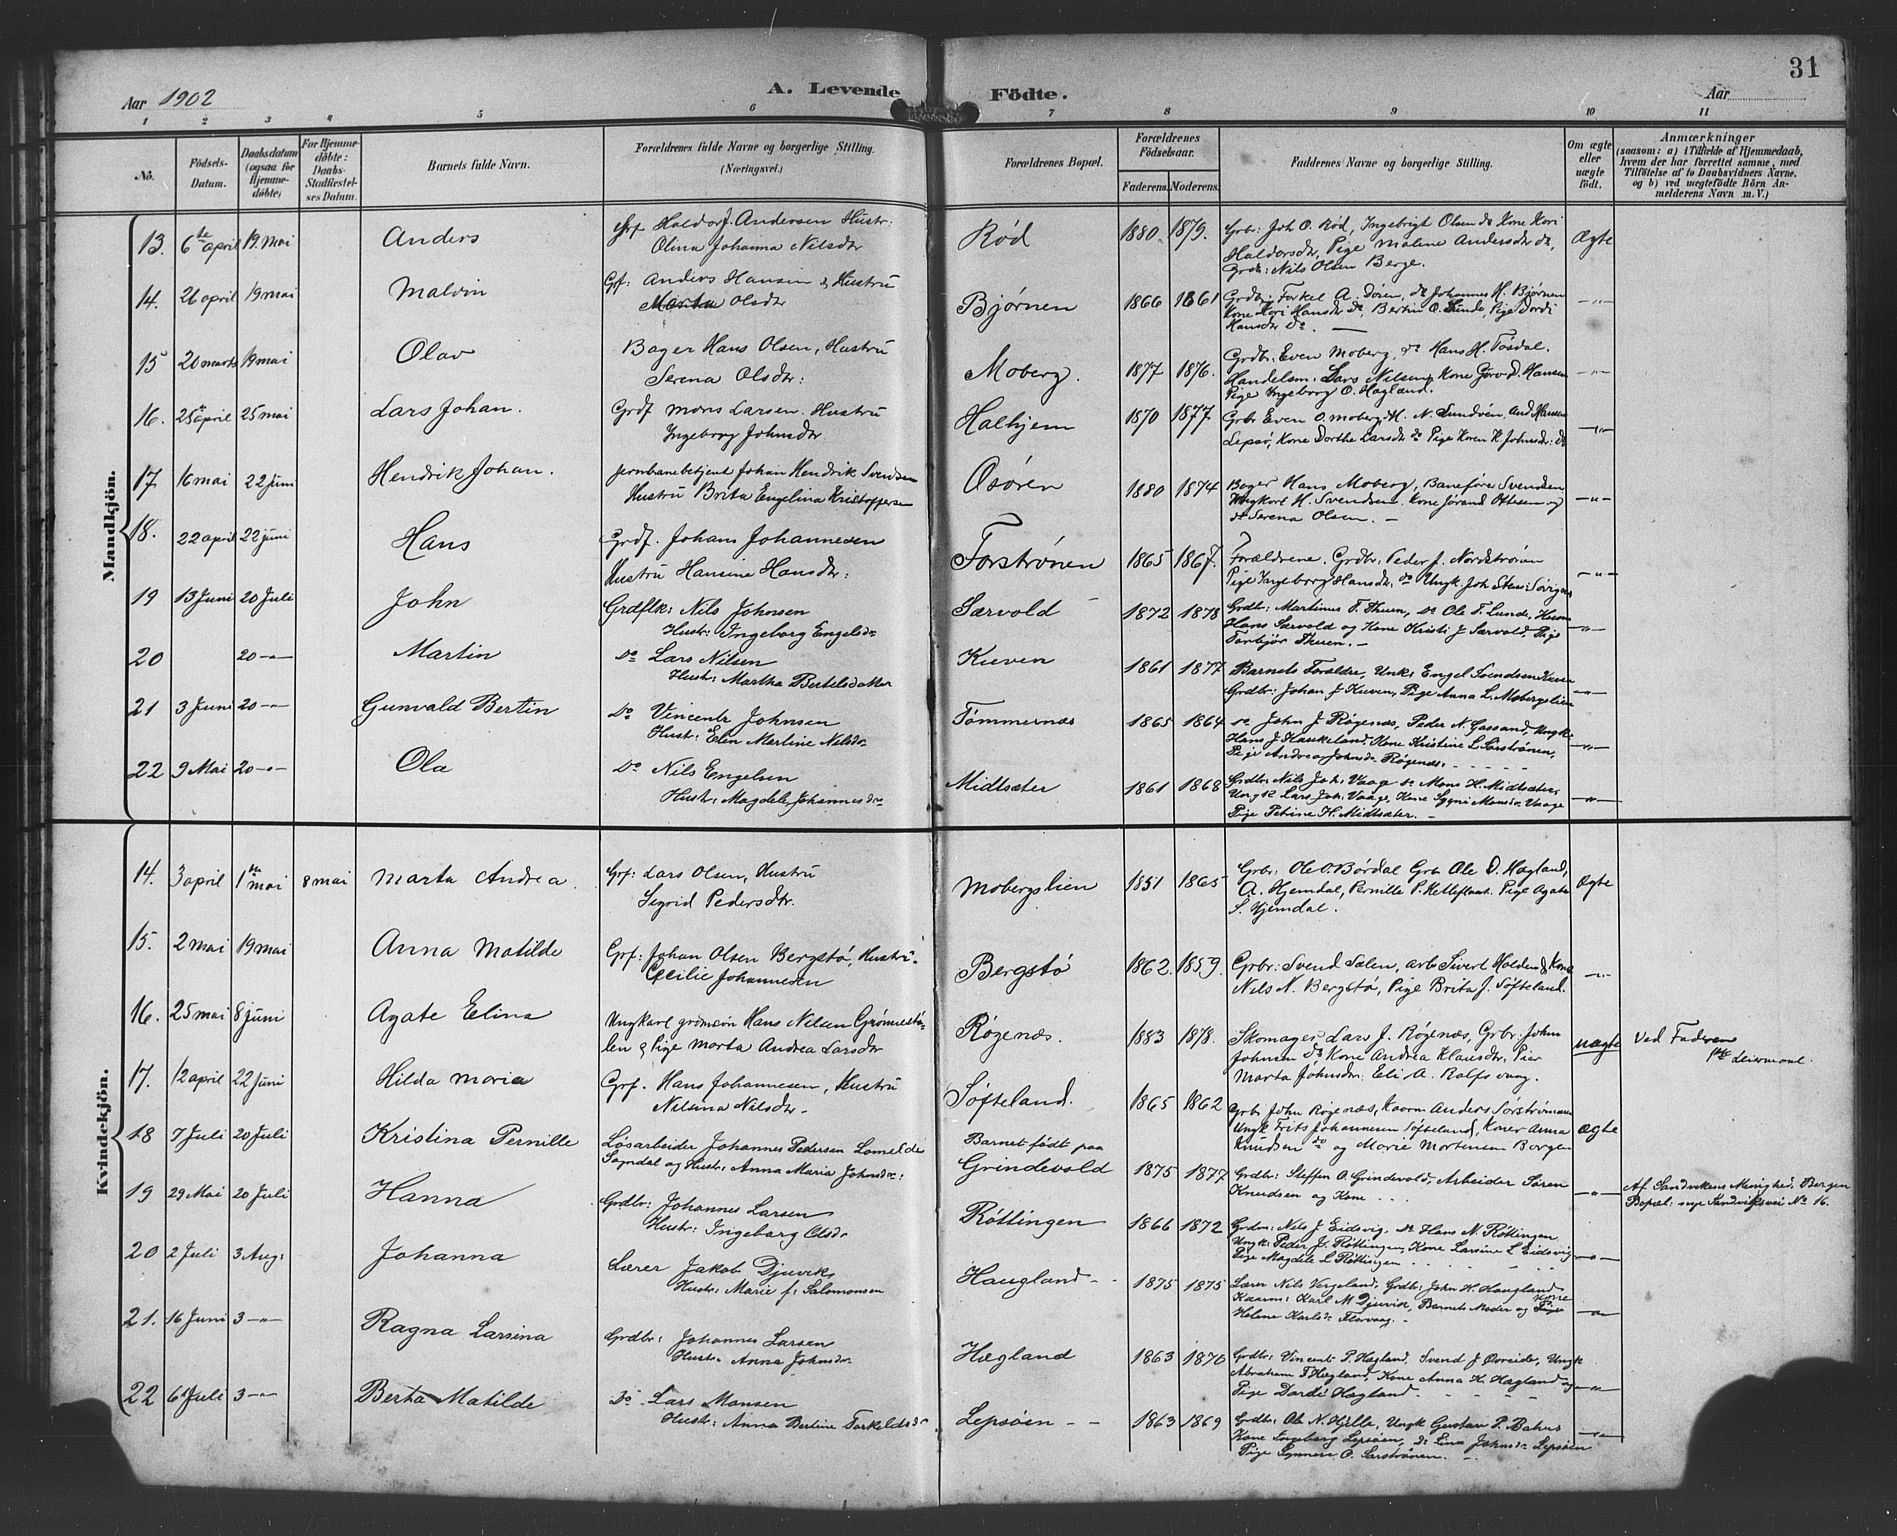 31
Aar 1902
A. Levende Födte.
Aar
1 2 3 4 5 6 7 8 9 10 11
No.
Födsels-Datum.
Daabsdatum (ogsaa för Hjemme-döbte)
For Hjemme-döbte: Daabs-Stadfæstel-ses Datum.
Barnets fulde Navn.
Forældrenes fulde Navne og borgerlige Stilling.
(Næringsvei.)
Forældrenes Bopæl.
Forældrenes Födselsaar.
Faderens. Moderens.
Faddernes Navne og borgerlige Stilling.
Om ægte eller uægte födt.
Anmærkninger
(saasom: a) i Tilfælde af Hjemmedaab,
hvem der har forrettet samme, med
Tilföielse af to Daabsvidners Navne,
og b) ved uægtefödte Börn An-
melderens Navn m. V.)
Mandkjön.
13. 6te april 19. mai Anders Grf Haldor J. Andersen Hustr: Rød 1880 1879. Grbr: Joh O. Rød, Ingebrigt Olsen do Kone Kari Ægte
Olina Johanna Nilsdtr Haldorsdtr, Pige Malene Andersdtr do,
Grdb: Nils Olsen Berge.
14. 26 april 19 mai Malvin Gf: Anders Hansen & Hustru Bjørnen 1866 1861 Grdbr. Torkel A. Døsen, do Johannes H. Bjørnen —"—
Marta Olsdtr Kone Kari Hansdtr do, Bertin O. Lunde, Pige Dordi
Hansdtr do. —
15 20 marts 19 mai Olav Bager Hans Olsen, Hustru Moberg. 1877 1876. Grdbr: Even Moberg, do Hans H. Tøsdal. —"—
Serena Olsdtr: Handelsm: Lars Nilsen, Kone Gjørv D. Hansen
Pige Ingeborg O. Hagland.
16. 25de april 25 mai Lars Johan. Grdf Mons Larsen. Hustru Halhjem 1870 1877. Grbr Even O. Moberg, H. N. Lundven, And Hansen —"—
Ingeborg Johnsdtr Lepsø, Kone Dorthe Larsdtr do Pige Karen K. Johnsdtr: do
17 16 mai 22 juni Hendrik Johan. Jernbanebetjent Johan Hendrik Svendsen Osøren 1880 1874 Bager Hans Moberg, Banefører Svendsen —"—
Hustru Brita Engelina Kristoffersen Ungkarl H. Svendsen, Kone Jorand Ottesen og
do Serena Olsen. —
18. 22 april 22 juni Hans Grdf. Johans Johannesen Forstrønen 1865 1867. Forældrene. Grdbr: Peder J. Nordstrønen —"—
Hustru Hansine Hansdtr: Pige Ingeborg Hansdtr. do Ungk. Joh
19 13 Juni 20 Juli John Grdflk: Nils Johnsen Særvold 1872 1878 Grdbr: Martinus T. Thuen, do Ole T. Lunde, —"—
Hustr: Ingeborg Engelsdr Hans Særvold og Kone Kristi J Særvold, Pige
Torbjør Thuen. —
20 20 —"— Martin Do Lars Nilsen Kuven 1861 1877 Barnets Forældre, Unk: Engel Svendsen Kuven —"—
Hust: Martha Bertelsdatter Grdbr: Johan J Kuven, Pige Anna L. Mobergslien
21 3 Juni 20 —"— Gunvald Bertin Do Vincents Johnsen Tømmernæs 1865 1864 do John J. Røgenæs, Peder N. Gassand, Ungk. —"—
Hust: Elen Martine Nilsdr Hans J Haukeland, Kone Kristine L Sørstrønen,
Pige Andrea Johnsdr Røgenæs.
22 9 Mai 20 —"— Ola Do Nils Engelsen Midtsæter 1861 1868 Grdbr: Nils Joh: Vaage do Mons H. Midtsæter, —"—
Hust: Magdele Johannesdr Ungk Lars Joh: Vaage, Kone Sygni Monsdr Vaage
Pige Petrine H. Midtsæter. —
Kvindekjön.
14. 3 april 1ste mai 8 mai Marta Andrea. Grf: Lars Olsen, Hustru Mobergslien 1851 1865 Grbr: Ole O. Børdal Grb Ole D. Hagland, Ægte
Sigrid Pedersdtr. A. Hjemdal, Pernille P. Pige Agate
S. Hjemdal.
15. 2 mai 19 mai Anna Matilde Grf: Johan Olsen Bergstø, Hustru Bergstø 1862. 1859. Grbr: Svend Sælen, arb. Sivert Holden & Kone —"—
Cecilie Johannesen Nils N. Bergstø, Pige Brita J. Søfteland.
16. 25 mai 8 juni Agate Elina Ungkarl grdmsøn Hans Nilsen Grønnestø- Røgenæs. 1883 1878. Skomager Lars J. Røgenæs, Grbr: John uægte Ved Faderen
len & Pige Marta Andrea Larsdtr Johnsen do Kone Andrea Klausdtr, Piger 1ste Leiermaal.
Marta Johnsdtr. Eli A. Rolfsvaag.
17. 12 april 22 juni Hilda Maria Grf. Hans Johannesen, Hustru Søfteland. 1865 1862 Grbr John Røgenæs, Kaarm Anders Sørstrønen Ægte
Nilsina Nilsdtr. Ungk Frits Johannesen Søfteland, Koner Anna
Knudsen do og Marie Mortensen Borgen
18 7 Juli 20 Juli Kristina Pernille Løsarbeider Johannes Pedersen Lomelde Barnet født paa
Sogndal og Hust: Anna Maria Johnsdr: Grindevold 1875 1877 Grdbr: Steffen O. Grindevold, Arbeider Søren —"— Af Sandvikens Menighed, Bergen
Knudsen og Kone . . . Bopæl: nye Sandviksvei No 16.
19 29 Mai 20 Juli Hanna Grdbr: Johannes Larsen Røttingen 1866 1872 Grdm: Nils J. Eidsvig, do Hans N. Røttingen —"—
Hust: Ingeborg Olsdr Ungk: Peder J. Røttingen, Kone Larsine L Eidsvig
Pige Magdele L Røttingen
20 2 Juli 3 Aug: Johanna Lærer Jakob Djuvik, Haugland 1875 1875 Lærer Nils Vergeland, Grdb: John H. Haugland —"—
Hust: Marie f: Salomonsen Kaarm: Karl M Djuvik, Barnets Moder og Kone
Helene Karlsdr Florvaag.
21. 16 Juni 3 —"— Ragna Larsina Grdbr: Johannes Larsen Hægland 1863 1870 Grdbr: Vincent P. Hægland, Svend J Øvreide, Ungk —"—
Hust: Anna Johnsdr Abraham T Hægland, Kone Anna H. Hægland og
Pige Dardi Hægland
22 6 Juli 3 —"— Berta Matilde Do Lars Monsen Lepsøen 1863 1869 Grdbr: Ole N. Hjelle, Ungk Gustav P. —"—
Hust: Anna Bertine Torkeldsdr Kone Ingeborg Lepsøen, do Lina Johnsdr Lepsøen
Pige Synneve O. Sørstrønen. —